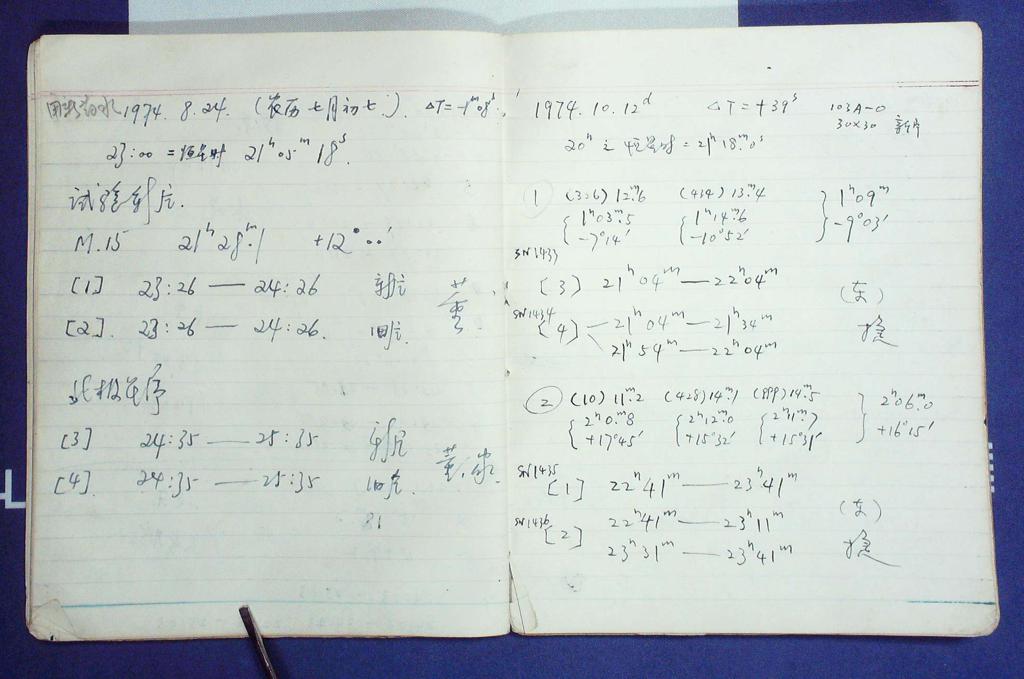 1974. 8.24. (农历七月初七). ΔT=-1ᵐ08ˢ.
23:00 = 恒星时 21ʰ05ᵐ18ˢ.
试验新片.
M.15 21ʰ28ᵐ.1 +12°00′
[1] 23:26 — 24:26 新片
[2]. 23:26 — 24:26. 旧片
董
北极星序
[3] 24:35 — 25:35 新片
[4]. 24:35 — 25:35 旧片.
董
81
1974.10.12ᵈ ΔT=+39ˢ 103A-O
30×30 新片
20ʰ 之恒星时=21ʰ18ᵐ.0ˢ
① (326) 12ᵐ.6 (434) 13ᵐ.4
1ʰ03ᵐ.5 1ʰ14ᵐ.6 1ʰ09ᵐ
-7°14′ -10°52′ -9°03′
SN1433
[3] 21ʰ04ᵐ — 22ʰ04ᵐ
(东)
SN1434
[4] 21ʰ04ᵐ — 21ʰ34ᵐ
21ʰ54ᵐ — 22ʰ04ᵐ
② (10) 11ᵐ.2 (428) 14ᵐ.1 (999) 14ᵐ.5
2ʰ0ᵐ.8 2ʰ12ᵐ.0 2ʰ11ᵐ.7 2ʰ06ᵐ.0
+17°45′ +15°32′ +15°31′ +16°15′
SN1435
[1] 22ʰ41ᵐ — 23ʰ41ᵐ
(东)
SN1436
[2] 22ʰ41ᵐ — 23ʰ11ᵐ
23ʰ31ᵐ — 23ʰ41ᵐ